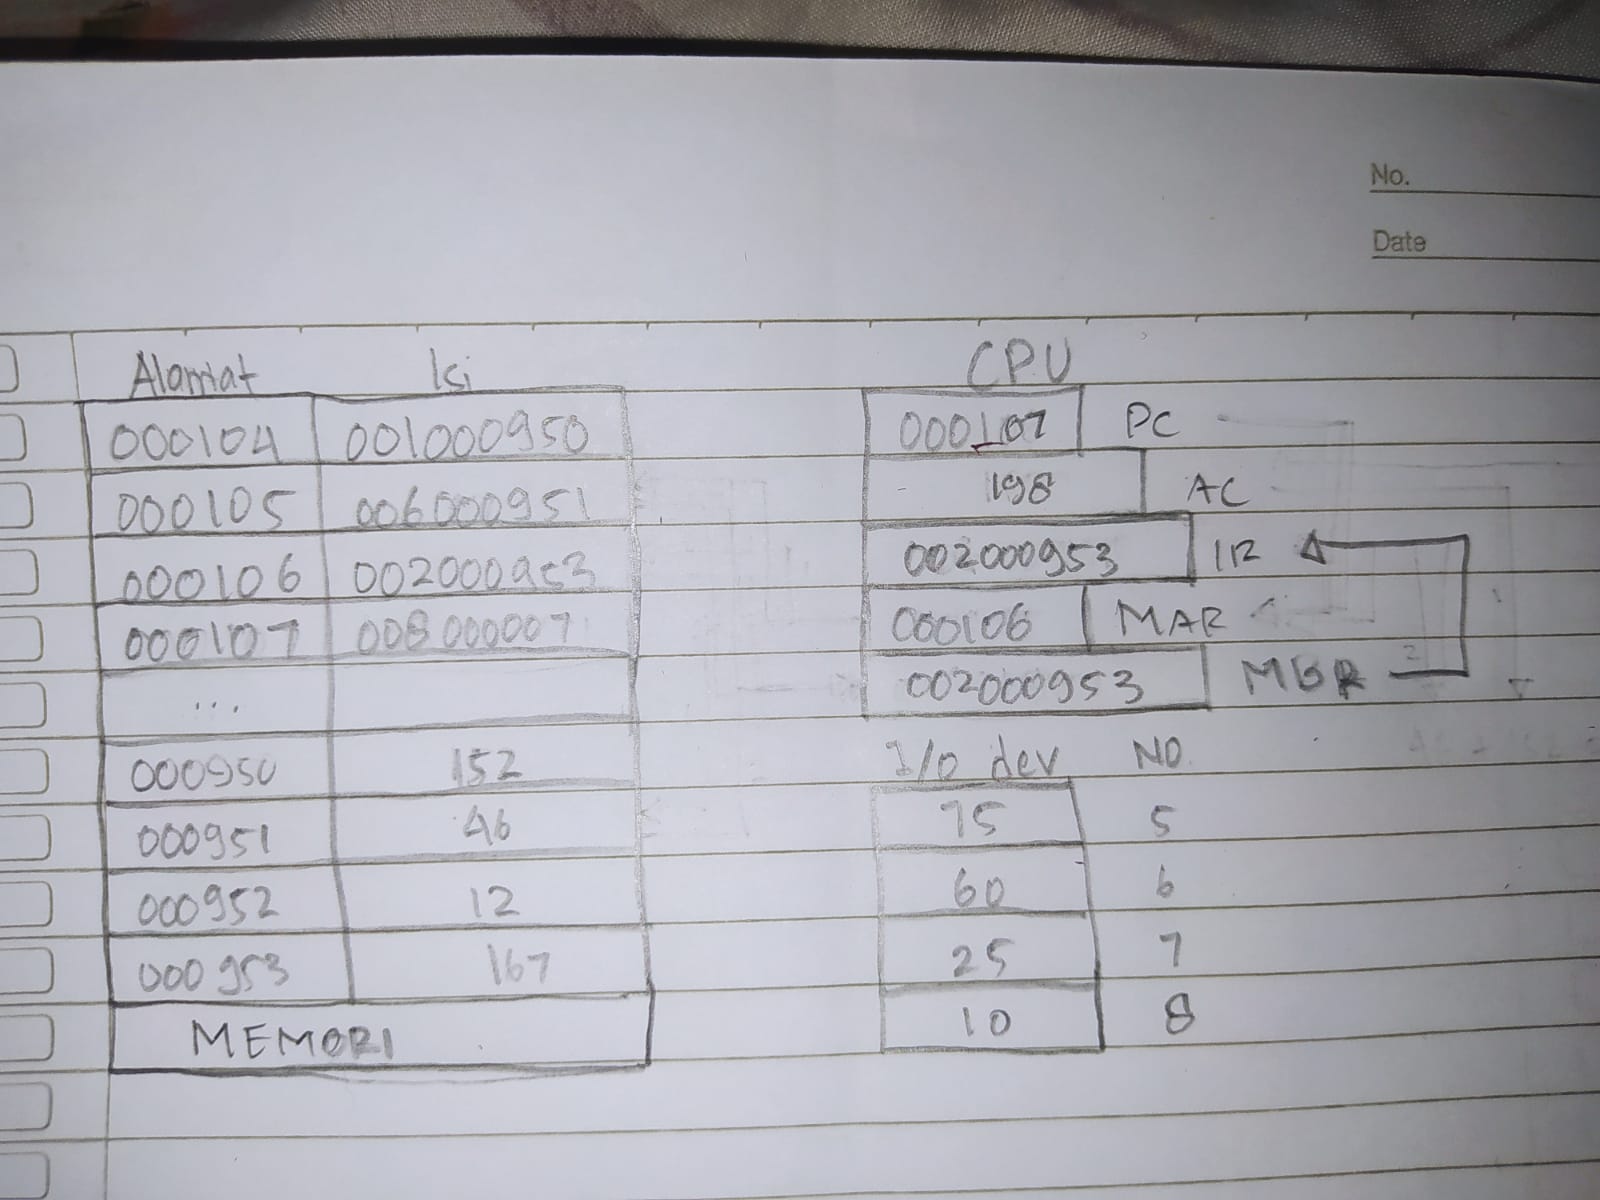 No.
Date
Alamat Isi
000104 001000950
000105 006000951
000106 002000953
000107 008000007
...
000950 152
000951 46
000952 12
000953 167
MEMORI
CPU
000107 PC
198 AC
002000953 IR
000106 MAR
002000953 MBR
I/O dev NO
75 5
60 6
25 7
10 8